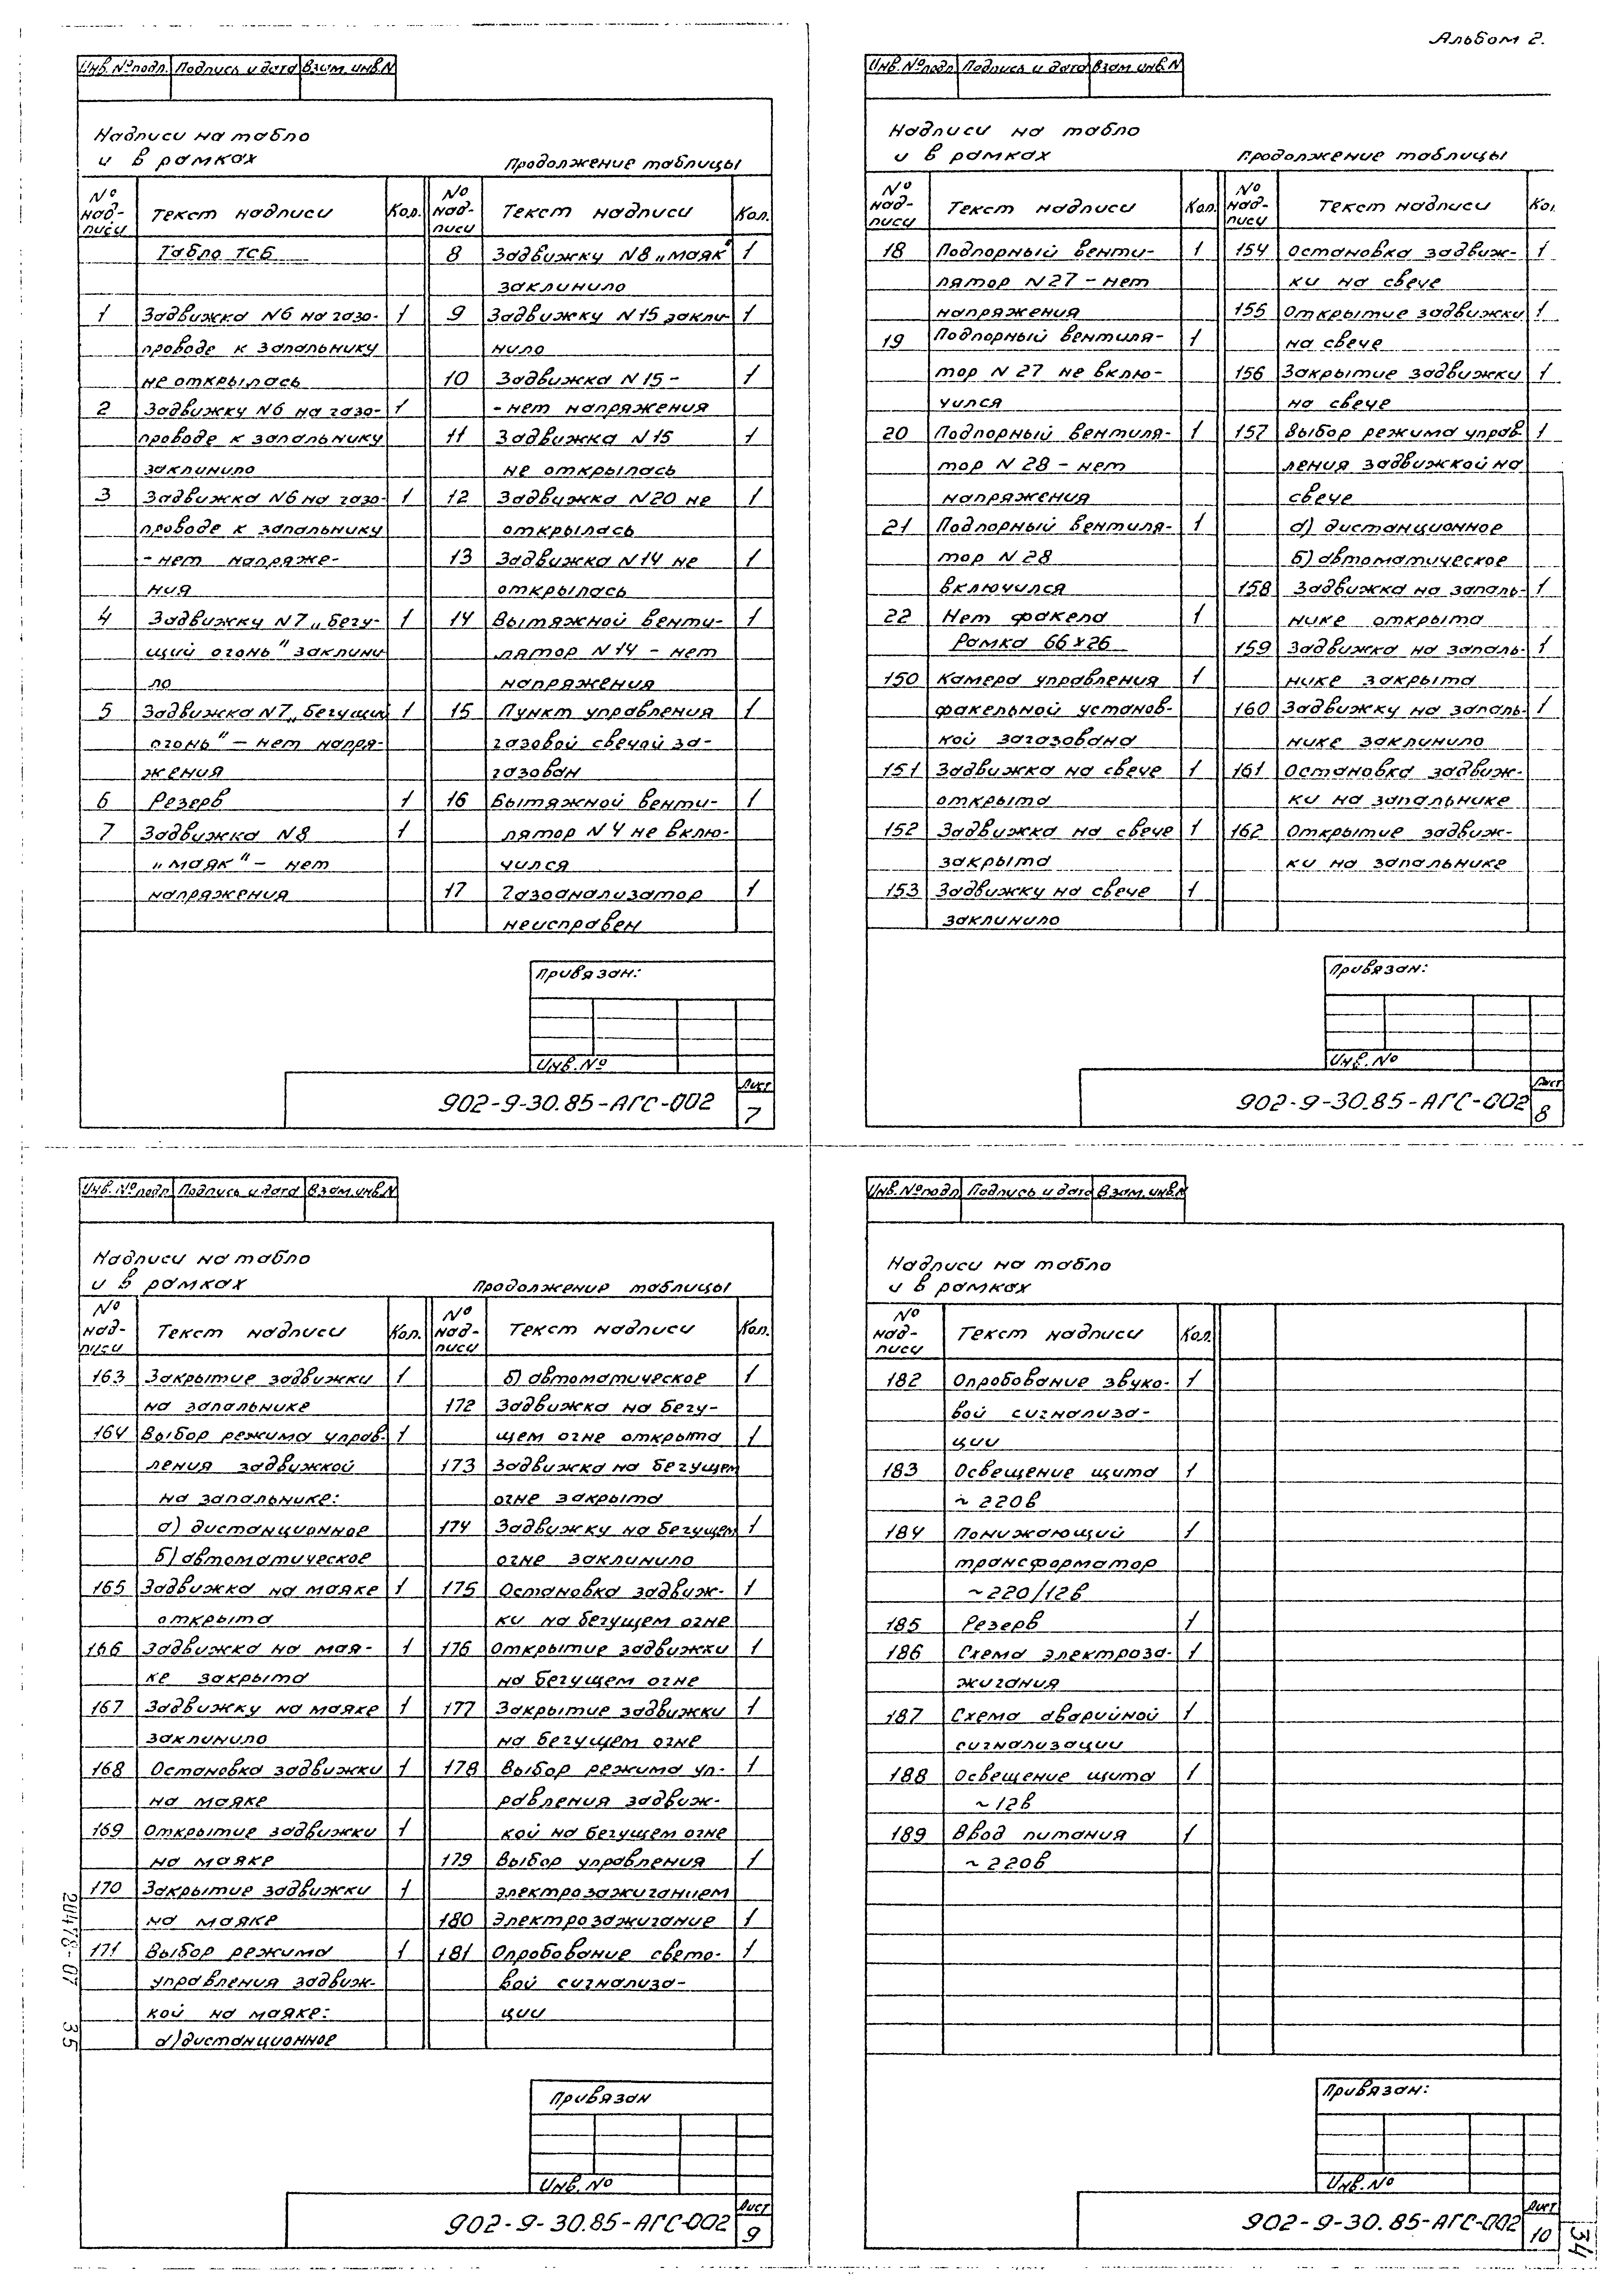 Альбом 2.
Инв. № подл. Подпись и дата Взам. инв. N
Надписи на табло
и в рамках
Продолжение таблицы
№ надписи Текст надписи Кол. № надписи Текст надписи Кол.
Табло ТСБ
1 Задвижка N6 на газо- 1
проводе к запальнику
не открылась
2 Задвижку N6 на газо- 1
проводе к запальнику
заклинило
3 Задвижка N6 на газо- 1
проводе к запальнику
- нет напряже-
ния
4 Задвижку N7 „бегу- 1
щий огонь" заклини
ло
5 Задвижка N7 „бегущий 1
огонь" – нет напря-
жения
6 Резерв 1
7 Задвижка N8 1
„маяк" – нет
напряжения
8 Задвижку N8 „маяк" 1
заклинило
9 Задвижку N15 закли- 1
нило
10 Задвижка N15 - 1
- нет напряжения
11 Задвижка N15 1
не открылась
12 Задвижка N20 не 1
открылась
13 Задвижка N14 не 1
открылась
14 Вытяжной венти- 1
лятор N14 – нет
напряжения
15 Пункт управления 1
газовой свечой за-
газован
16 Вытяжной венти- 1
лятор N4 не вклю-
чился
17 Газоанализатор 1
неисправен
Привязан:
Инв. №
902-9-30.85-АГС-002
Лист
7
Инв. № подл Подпись и дата Взам. инв. N
Надписи на табло
и в рамках
Продолжение таблицы
№ надписи Текст надписи Кол. № надписи Текст надписи Кол
18 Подпорный венти- 1
лятор N27 – нет
напряжения
19 Подпорный вентиля- 1
тор N27 не вклю-
чился
20 Подпорный вентиля- 1
тор N28 – нет
напряжения
21 Подпорный вентиля- 1
тор N28
включился
22 Нет факела 1
Рамка 66х26
150 Камера управления 1
факельной установ-
кой загазована
151 Задвижка на свече 1
открыта
152 Задвижка на свече 1
закрыта
153 Задвижку на свече 1
заклинило
154 Остановка задвиж- 1
ки на свече
155 Открытие задвижки 1
на свече
156 Закрытие задвижки 1
на свече
157 Выбор режима управ- 1
ления задвижкой на
свече
а) дистанционное
б) автоматическое
158 Задвижка на запаль- 1
нике открыта
159 Задвижка на запаль- 1
нике закрыта
160 Задвижку на запаль- 1
нике заклинило
161 Остановка задвиж-
ки на запальнике
162 Открытие задвиж-
ки на запальнике
Привязан:
Инв. №
902-9-30.85-АГС-002
Лист
8
Инв. № подл Подпись и дата Взам. инв. N
Надписи на табло
и в рамках
Продолжение таблицы
№ надписи Текст надписи Кол. № надписи Текст надписи Кол.
163 Закрытие задвижки 1
на запальнике
164 Выбор режима управ- 1
ления задвижкой
на запальнике:
а) дистанционное
б) автоматическое
165 Задвижка на маяке 1
открыта
166 Задвижка на мая- 1
ке закрыта
167 Задвижку на маяке 1
заклинило
168 Остановка задвижки 1
на маяке
169 Открытие задвижки 1
на маяке
170 Закрытие задвижки 1
на маяке
171 Выбор режима 1
управления задвиж-
кой на маяке:
а) дистанционное
б) автоматическое 1
172 Задвижка на бегу-
щем огне открыта 1
173 Задвижка на бегущем
огне закрыта
174 Задвижку на бегущем 1
огне заклинило
175 Остановка задвиж- 1
ки на бегущем огне
176 Открытие задвижки 1
на бегущем огне
177 Закрытие задвижки 1
на бегущем огне
178 Выбор режима уп- 1
равления задвиж-
кой на бегущем огне
179 Выбор управления 1
электрозажиганием
180 Электрозажигание 1
181 Опробование свето- 1
вой сигнализа-
ции
20478-07 35
Привязан
Инв. №
902-9-30.85-АГС-002
Лист
9
Инв. № подл Подпись и дата Взам. инв. N
Надписи на табло
и в рамках
№ надписи Текст надписи Кол.
182 Опробование звуко- 1
вой сигнализа-
ции
183 Освещение щита 1
~ 220в
184 Понижающий 1
трансформатор
~220/12в
185 Резерв 1
186 Схема электроза- 1
жигания
187 Схема аварийной 1
сигнализации
188 Освещение щита 1
~12в
189 Ввод питания 1
~220в
Привязан:
Инв. №
902-9-30.85-АГС-002
Лист
10
34